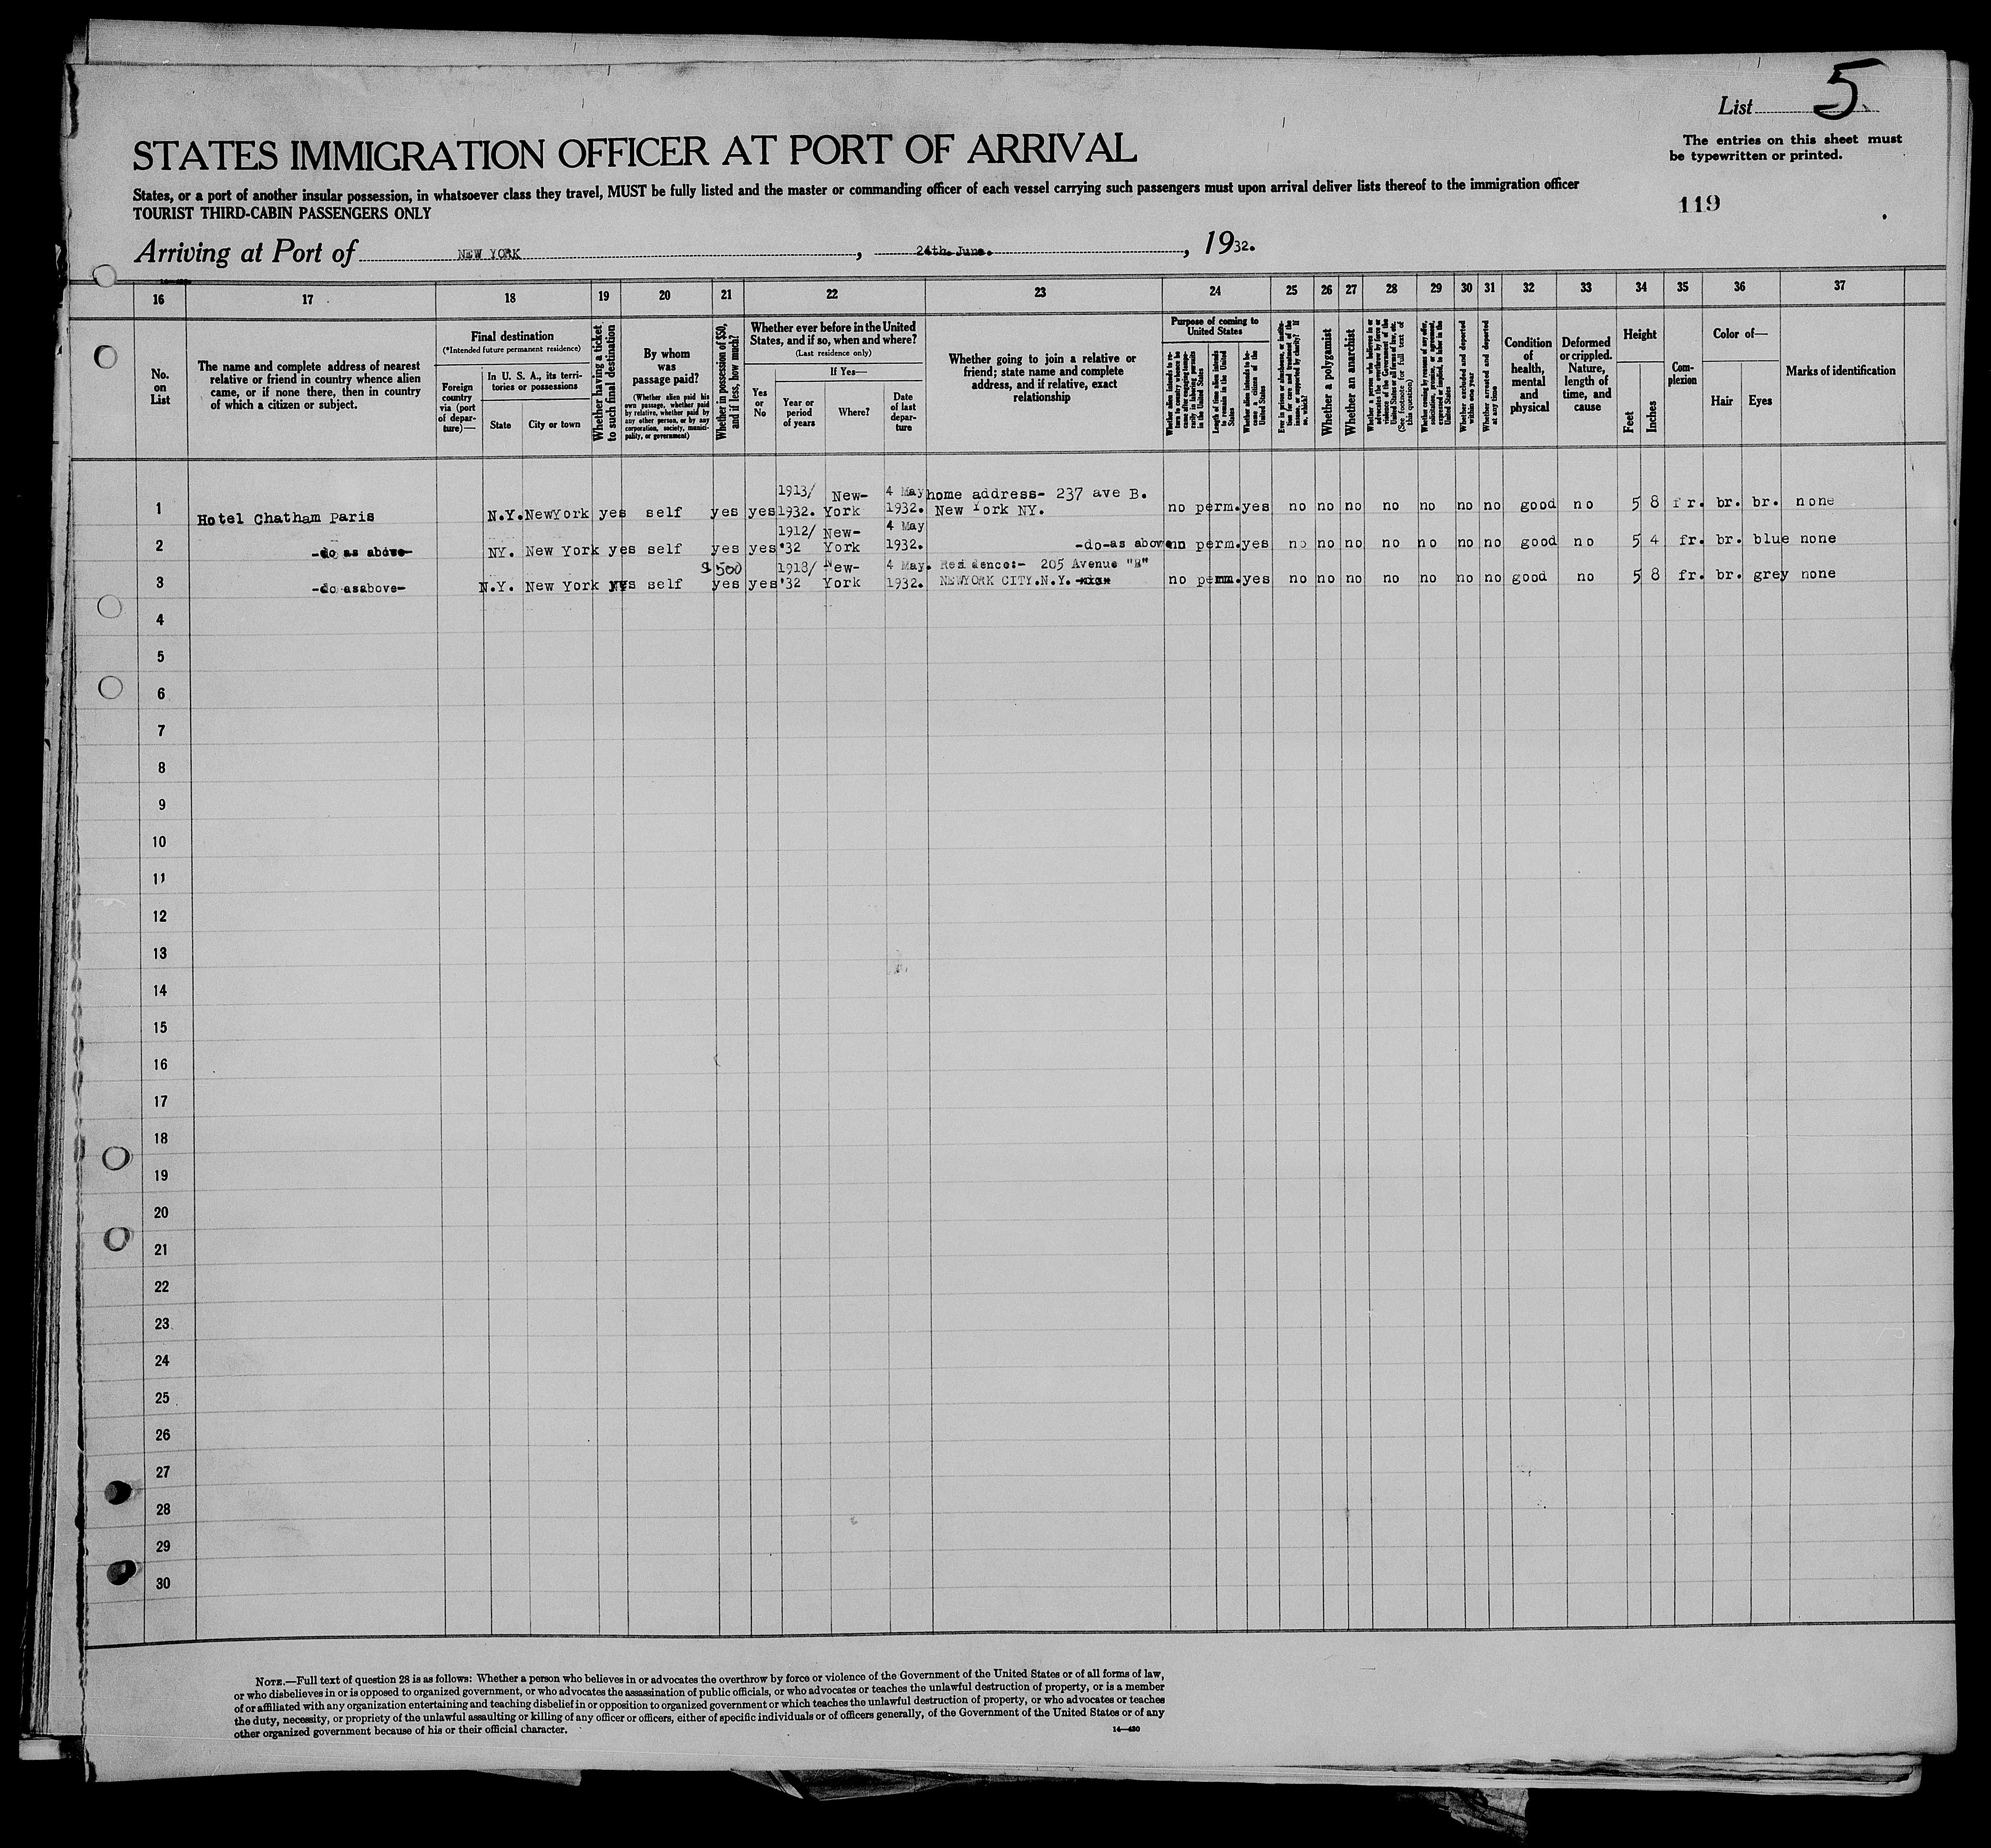 List 5
The entries on this sheet must
be typewritten or printed.
STATES IMMIGRATION OFFICER AT PORT OF ARRIVAL
States, or a port of another insular possession, in whatsoever class they travel, MUST be fully listed and the master or commanding officer of each vessel carrying such passengers must upon arrival deliver lists thereof to the immigration officer
TOURIST THIRD-CABIN PASSENGERS ONLY
119
Arriving at Port of NEW YORK, 24th.June., 1932.
16 17 18 19 20 21 22 23 24 25 26 27 28 29 30 31 32 33 34 35 36 37
No.
on
List
The name and complete address of nearest
relative or friend in country whence alien
came, or if none there, then in country
of which a citizen or subject.
Final destination
(*Intended future permanent residence)
Foreign
country
via (port
of depar-
ture)—
In U. S. A., its terri-
tories or possessions
State
City or town
Whether having a ticket
to such final destination
By whom
was
passage paid?
(Whether alien paid his
own passage, whether paid
by relative, whether paid by
any other person, or by any
corporation, society, munici-
pality, or government)
Whether in possession of $50,
and if less, how much?
Whether ever before in the United
States, and if so, when and where?
(Last residence only)
Yes
or
No
If Yes—
Year or
period
of years
Where?
Date
of last
depar-
ture
Whether going to join a relative or
friend; state name and complete
address, and if relative, exact
relationship
Purpose of coming to
United States
Whether alien intends to re-
turn to country whence he
came after engaging tempo-
rarily in laboring pursuits
in the United States
Length of time alien intends
to remain in the United
States
Whether alien intends to be-
come a citizen of the
United States
Ever in prison or almshouse, or institu-
tion for care and treatment of the
insane, or supported by charity? If
so, which?
Whether a polygamist
Whether an anarchist
Whether a person who believes in or
advocates the overthrow by force or
violence of the Government of the
United States or all forms of law, etc.
(See footnote for full text of
this question)
Whether coming by reasons of any offer,
solicitation, promise, or agreement,
expressed or implied, to labor in the
United States
Whether excluded and deported
within one year
Whether arrested and deported
at any time
Condition
of
health,
mental
and
physical
Deformed
or crippled.
Nature,
length of
time, and
cause
Height
Feet
Inches
Com-
plexion
Color of—
Hair
Eyes
Marks of identification
1913/ New- 4 May home address- 237 ave B.
1 Hotel Chatham Paris N.Y. NewYork yes self yes yes 1932. York 1932. New York NY. no perm. yes no no no no no no no good no 5 8 fr. br. br. none
1912/ New- 4 May
2 -do as above- NY. New York yes self yes yes '32 York 1932. -do-as above no perm. yes no no no no no no no good no 5 4 fr. br. blue none
$ 500 1918/ New- 4 May. Residence:- 205 Avenue
3 -do asabove- N.Y. New York yes self yes yes '32 York 1932. NEWYORK CITY.N.Y. no perm. yes no no no no no no no good no 5 8 fr. br. grey none
4
5
6
7
8
9
10
11
12
13
14
15
16
17
18
19
20
21
22
23
24
25
26
27
28
29
30
NOTE.—Full text of question 28 is as follows: Whether a person who believes in or advocates the overthrow by force or violence of the Government of the United States or of all forms of law,
or who disbelieves in or is opposed to organized government, or who advocates the assassination of public officials, or who advocates or teaches the unlawful destruction of property, or is a member
of or affiliated with any organization entertaining and teaching disbelief in or opposition to organized government or which teaches the unlawful destruction of property, or who advocates or teaches
the duty, necessity, or propriety of the unlawful assaulting or killing of any officer or officers, either of specific individuals or of officers generally, of the Government of the United States or of any
other organized government because of his or their official character.
14—430